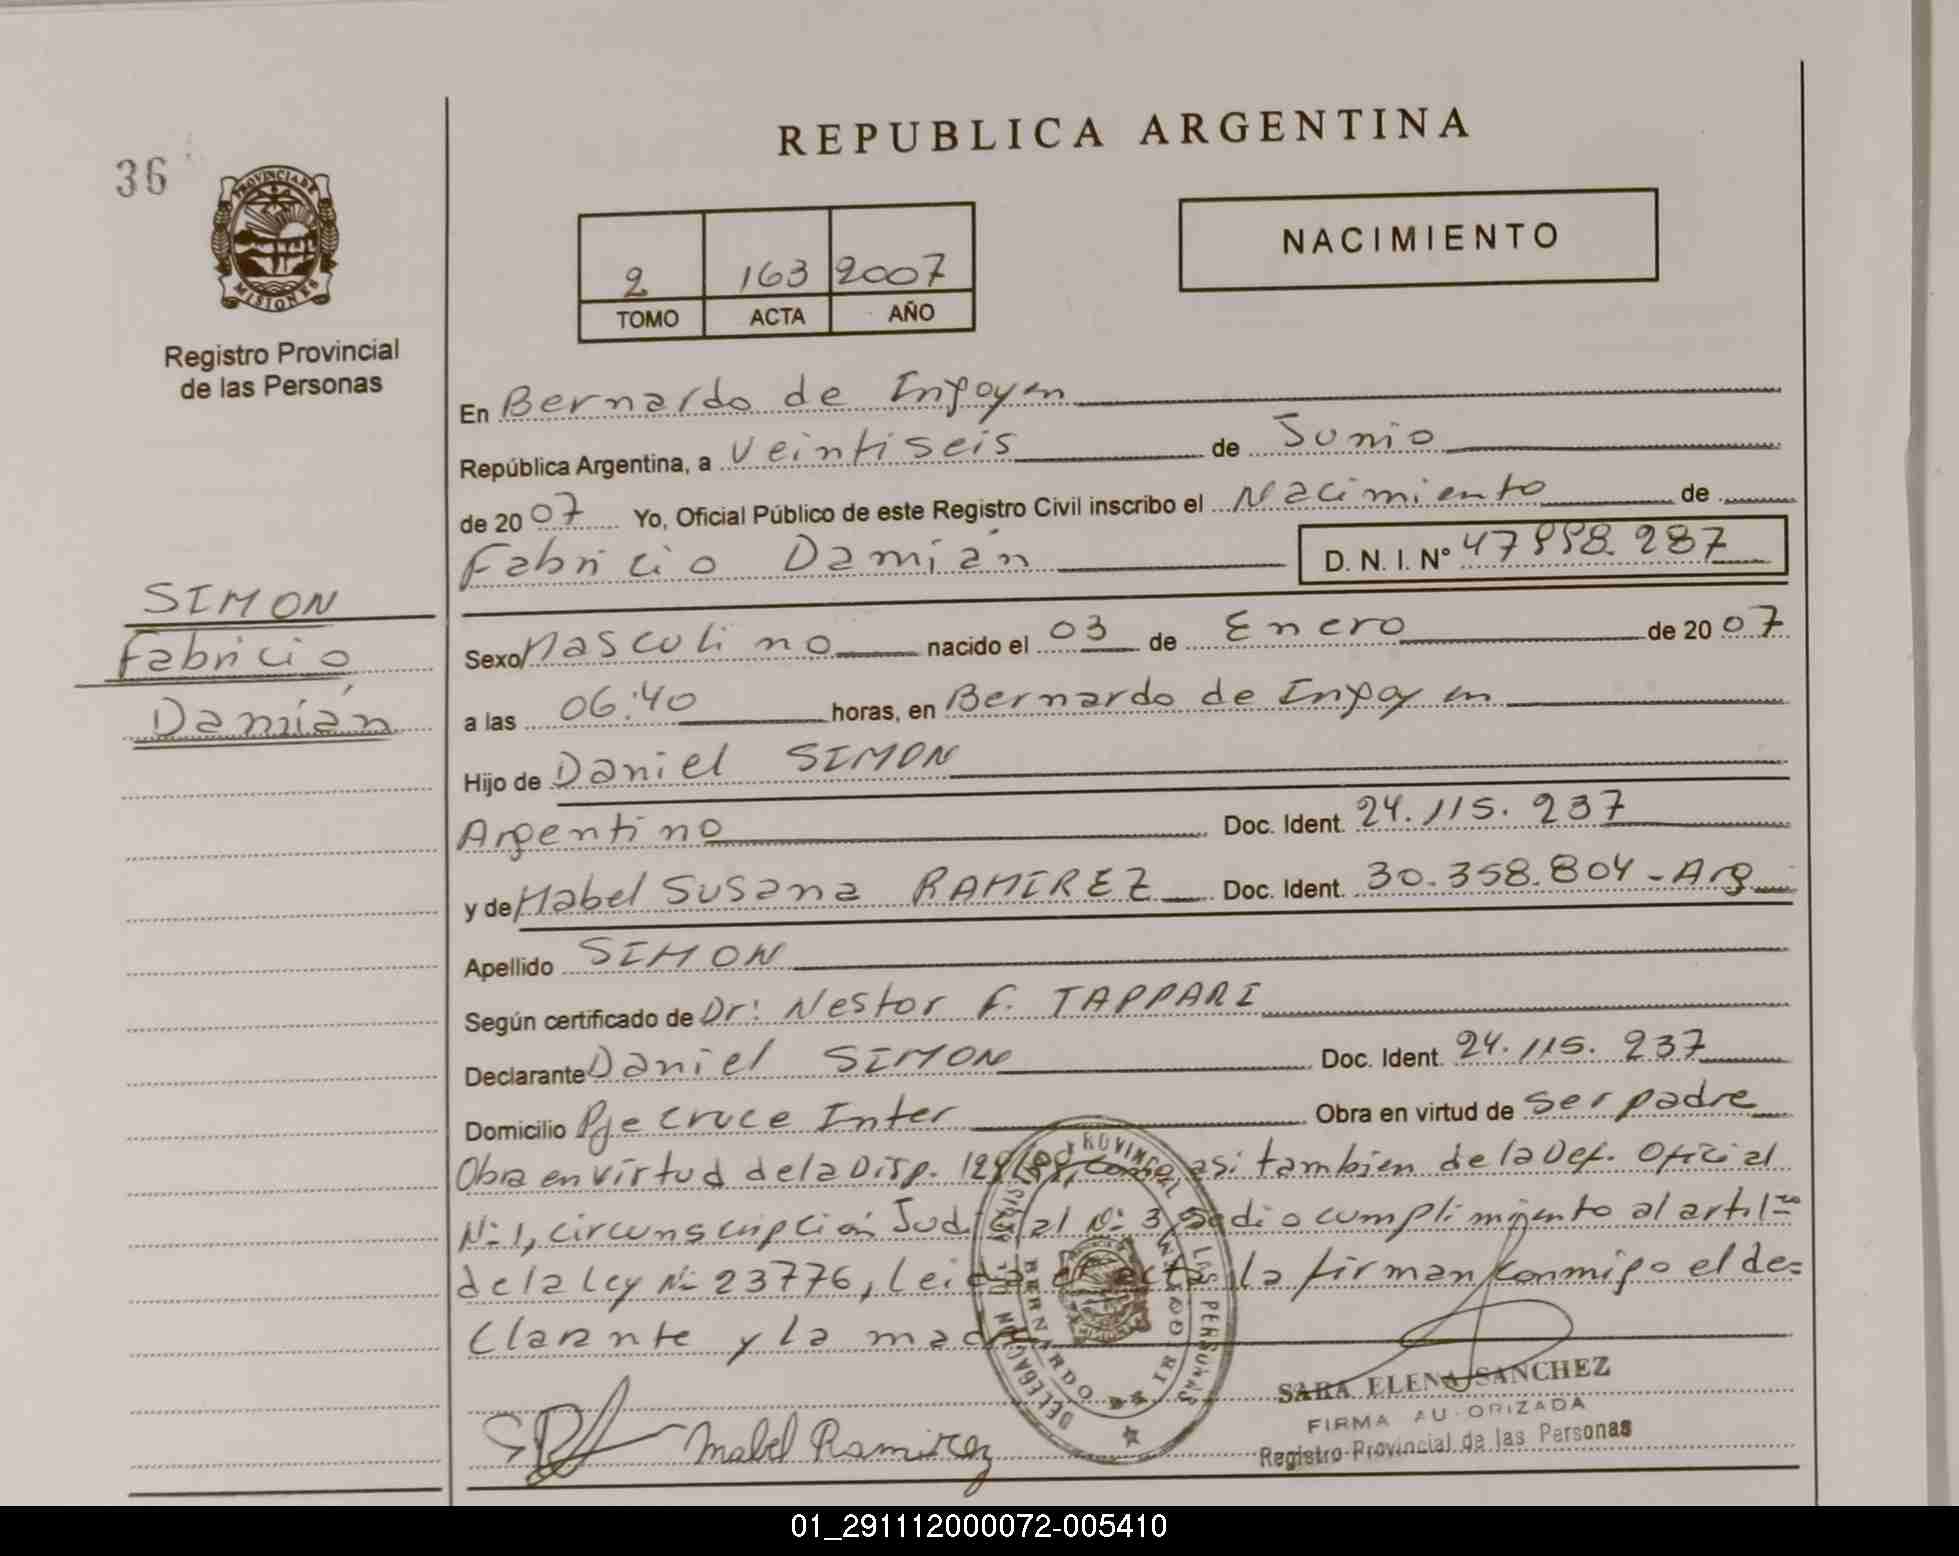 REPUBLICA ARGENTINA
36
PROVINCIA DE
MISIONES
Registro Provincial
de las Personas
2 163 2007
TOMO ACTA AÑO
NACIMIENTO
SIMON
Fabricio
Damián
En Bernardo de Irigoyen
República Argentina, a Veintiseis de Junio
de 2007 Yo, Oficial Público de este Registro Civil inscribo el Nacimiento de
Fabricio Damián D. N. I. N° 47.998.287
Sexo Masculino nacido el 03 de Enero de 2007
a las 06:40 horas, en Bernardo de Irigoyen
Hijo de Daniel SIMON
Argentino Doc. Ident. 24.115.237
y de Mabel Susana RAMIREZ Doc. Ident. 30.358.804 - Arg
Apellido SIMON
Según certificado de Dr: Nestor F. TAPPARI
Declarante Daniel SIMON Doc. Ident. 24.115.237
Domicilio Pje Cruce Inter Obra en virtud de ser padre
Obra en virtud de la Disp. como asi tambien de la Def. Oficial
N° 1, circunscripción Judicial N° 3, se dio cumplimiento al art 1ro
de la Ley N° 23776, Leida el acta la firman conmigo el de=
clarante y la madre
DELEGACION DEL REGISTRO PROVINCIAL DE LAS PERSONAS
BERNARDO DE IRIGOYEN
Mabel Ramirez
SARA ELENA SANCHEZ
FIRMA AUTORIZADA
Registro Provincial de las Personas
01_291112000072-005410